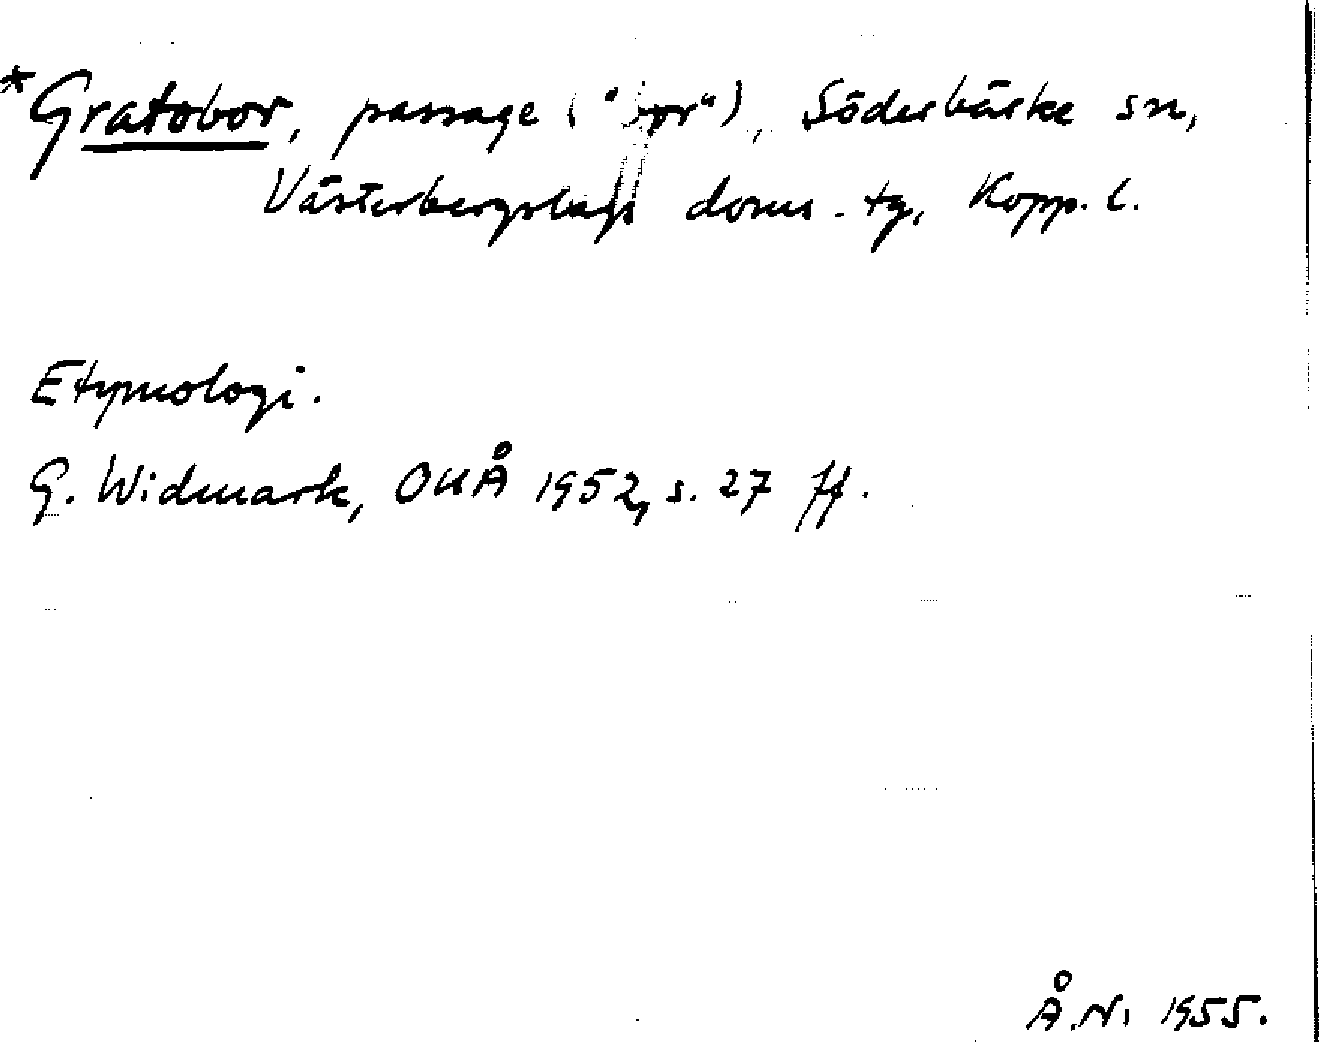 *Gratobor, passage ("bor"), Söderbärke sn,
Västerbergslags doms.tg, Kopp. l.
Etymologi.
G. Widmark, OUÅ 1952, s. 27 ff.
Å.N. 1955.